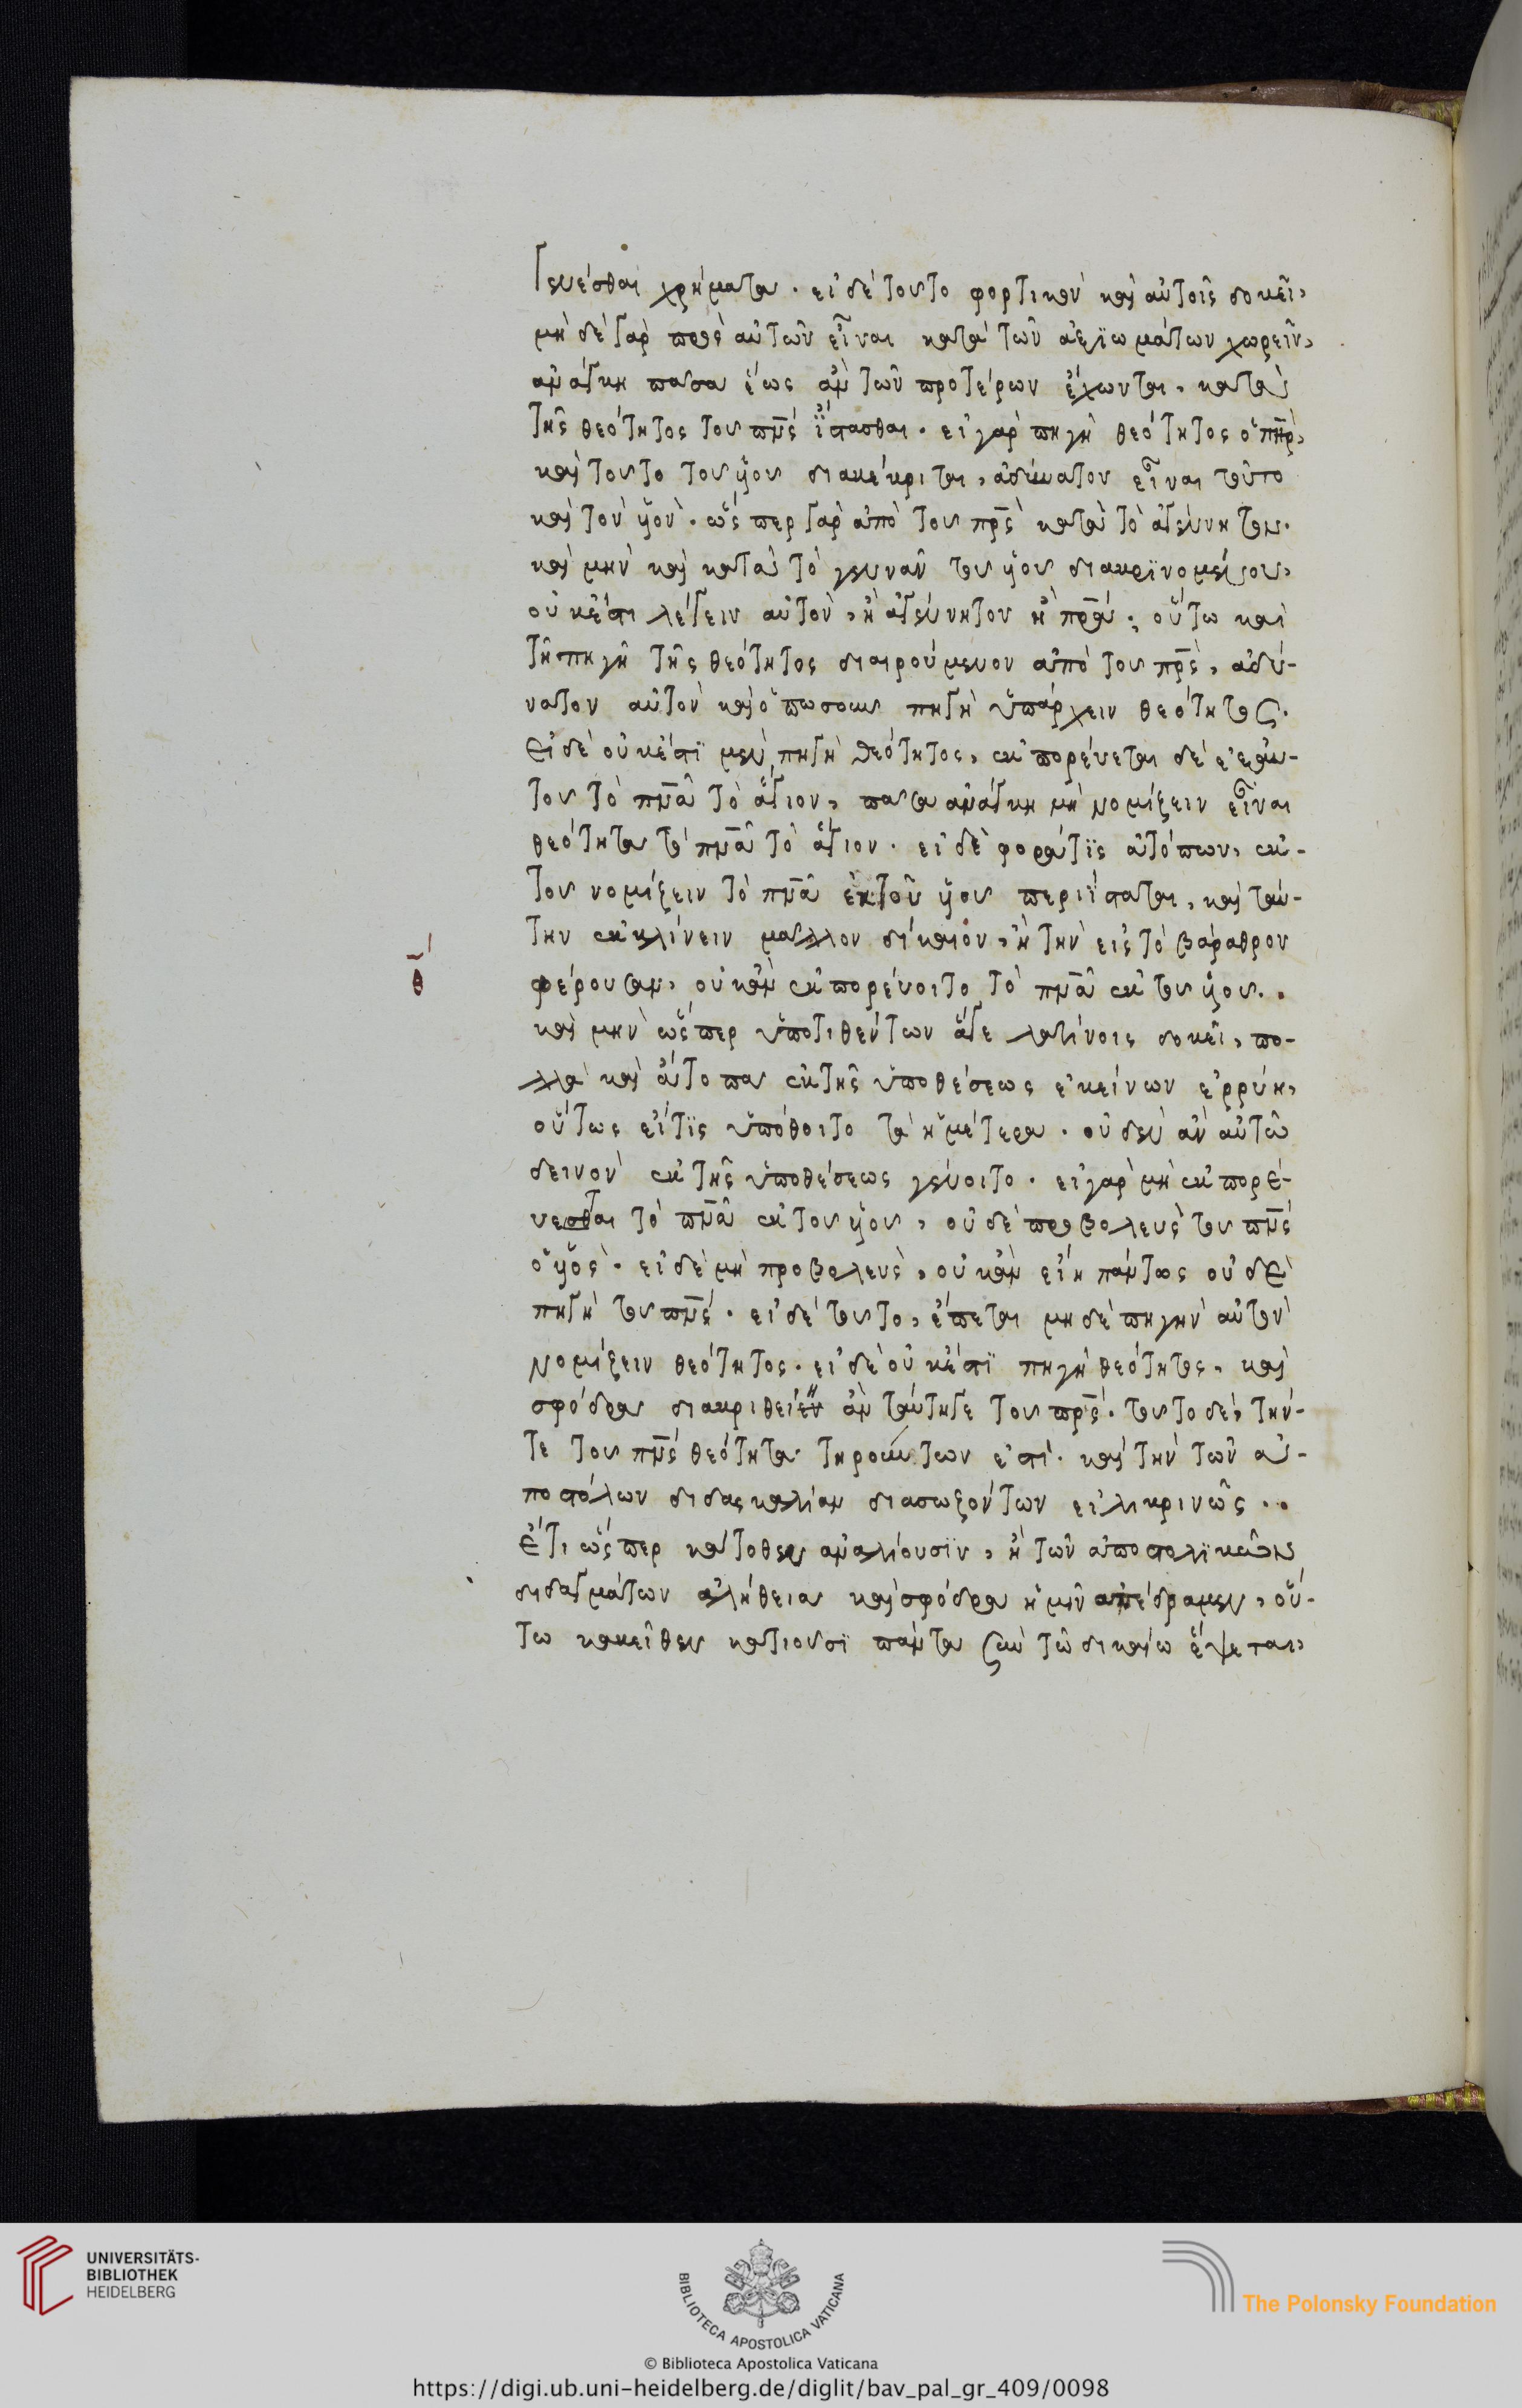 γενέσθαι χρήματα. εἰ δὲ τοῦτο φορτικὸν καὶ αὐτοῖς δοκεῖ,
μὴ δὲ γὰρ πρὸς αὐτῶν εἶναι κατὰ τῶν ἀξιωμάτων χωρεῖν,
ἀνάγκη πᾶσα ἕως ἂν τῶν προτέρων ἔχωνται, κατὰ
τῆς θεότητος τοῦ πν̅ς ἵστασθαι. εἰ γὰρ πηγὴ θεότητος ὁ πη̅ρ,
καὶ τοῦτο τοῦ υἱοῦ διακέκριται, ἀδύνατον εἶναι τοῦτο
καὶ τὸν υἱόν. ὥσπερ γὰρ ἀπὸ τοῦ πρ̅ς κατὰ τὸ ἀγέννητον.
καὶ μὴν καὶ κατὰ τὸ γεννᾶν τοῦ υἱοῦ διακρινομένου,
οὐκ ἔστι λέγειν αὐτὸν, ἢ ἀγέννητον ἢ πρ̅α· οὕτω καὶ
τῇ πηγῇ τῆς θεότητος διαιρούμενον ἀπὸ τοῦ πρ̅ς, ἀδύ-
νατον αὐτὸν καὶ ὁπωσοῦν πηγὴ ὑπάρχειν θεότητος.
εἰ δὲ οὐκ ἔστι μὲν πηγὴ θεότητος, ἐκπορεύεται δὲ ἐξ αὐ-
τοῦ τὸ πν̅α τὸ ἅγιον, πᾶσα ἀνάγκη μὴ νομίζειν εἶναι
θεότητα τὸ πν̅α τὸ ἅγιον. εἰ δὲ φορά τις ἀτόπων, ἐκ
τοῦ νομίζειν τὸ πν̅α ἐκ τοῦ υἱοῦ περιίσταται, καὶ ταύ-
την ἐκκλίνειν μᾶλλον δίκαιον, ἢ τὴν εἰς τὸ βάραθρον
φέρουσαν, οὐκ ἂν ἐκπορεύοιτο τὸ πν̅α ἐκ τοῦ υἱοῦ..
θ̅
καὶ μὴν ὥσπερ ὑποτιθέντων ἅγε λατίνοις δοκεῖ, πο-
λλὰ καὶ ἄτοπα ἐκ τῆς ὑποθέσεως ἐκείνων ἐρρύη,
οὕτως εἴ τις ὑπόθοιτο τὰ ἡμέτερα. οὐδὲν ἂν αὐτῶ
δεινὸν ἐκ τῆς ὑποθέσεως γένοιτο. εἰ γὰρ μὴ ἐκπορεύ-
εσθαι τὸ πν̅α ἐκ τοῦ υἱοῦ, οὐδὲ προβολεὺς τοῦ πν̅ς
ὁ υἱός. εἰ δὲ μὴ προβολεὺς, οὐκ ἂν εἴη πάντως οὐδὲ
πηγὴ τοῦ πν̅ς. εἰ δὲ τοῦτο, ἕπεται μηδὲ πηγὴν αὐτὸν
νομίζειν θεότητος. εἰ δὲ οὐκ ἔστι πηγὴ θεότητος, καὶ
σφόδρα διακριθείη ἂν ταύτῃ γε τοῦ πρ̅ς. τοῦτο δὲ, τήν-
τε τοῦ πν̅ς θεότητα τηρούντων ἐστὶ. καὶ τὴν τῶν ἀ-
ποστόλων διδασκαλίαν διασωζόντων εἰλικρινῶς..
ἔτι ὥσπερ κάτοθεν ἀναλύουσιν, ἡ τῶν ἀποστολικῶν
διδαγμάτων ἀλήθεια καὶ σφόδρα ἡμῖν ἀπέδραμεν, οὕ-
τω κακεῖθεν κατιοῦσι πάντα σὺν τῶ δικαίω ἕψεται,
UNIVERSITÄTS-
BIBLIOTHEK
HEIDELBERG
BIBLIOTECA APOSTOLICA VATICANA
The Polonsky Foundation
© Biblioteca Apostolica Vaticana
https://digi.ub.uni-heidelberg.de/diglit/bav_pal_gr_409/0098